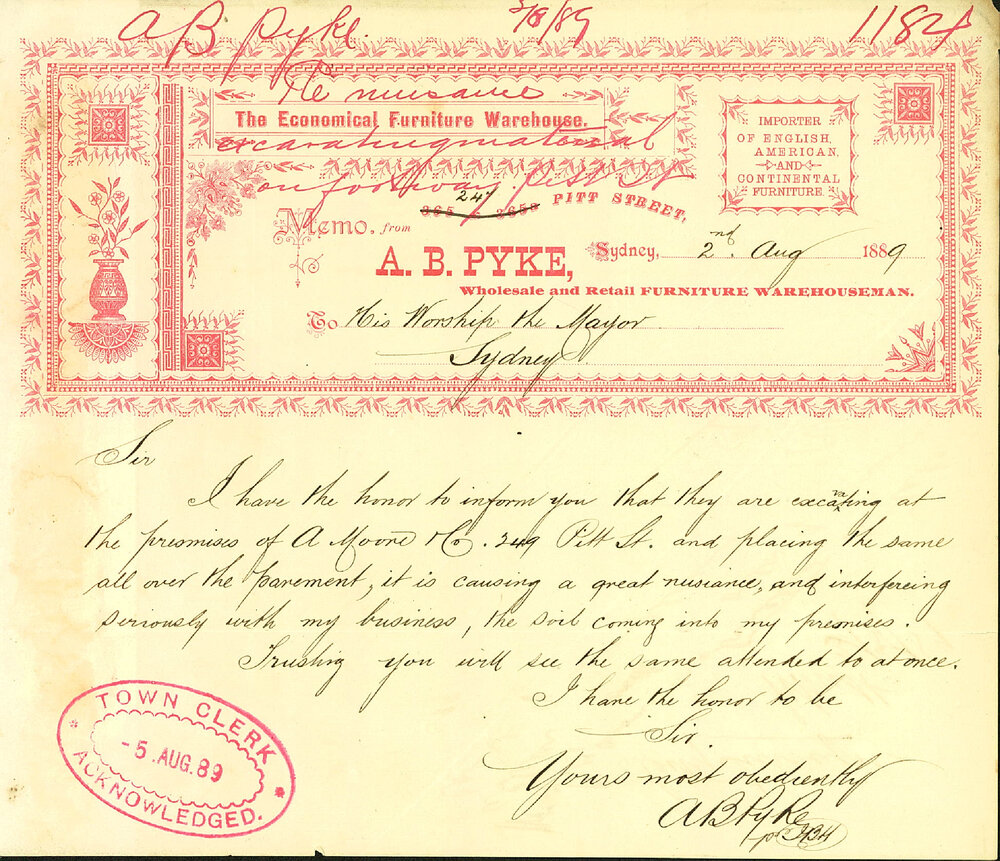 A B Pyke. 3/8/89 1184
Re nuisance
The Economical Furniture Warehouse.
excavating material
on footway Pitt St
IMPORTER
OF ENGLISH,
AMERICAN,
AND
CONTINENTAL
FURNITURE.
247
365 & 365½ PITT STREET,
Memo. from
A. B. PYKE,
Sydney, 2nd. Aug 1889
Wholesale and Retail FURNITURE WAREHOUSEMAN.
To His Worship the Mayor
Sydney
Sir
I have the honor to inform you that they are excavating at
the presmises of A Moore & Co. 249 Pitt St. and placing the same
all over the pavement, it is causing a great nusiance, and interfereing
seriously with my business, the soil coming into my presmises.
Trusting you will see the same attended to at once.
I have the honor to be
Sir.
Yours most obediently
A B Pyke
TOWN CLERK
-5. AUG. 89
ACKNOWLEDGED.